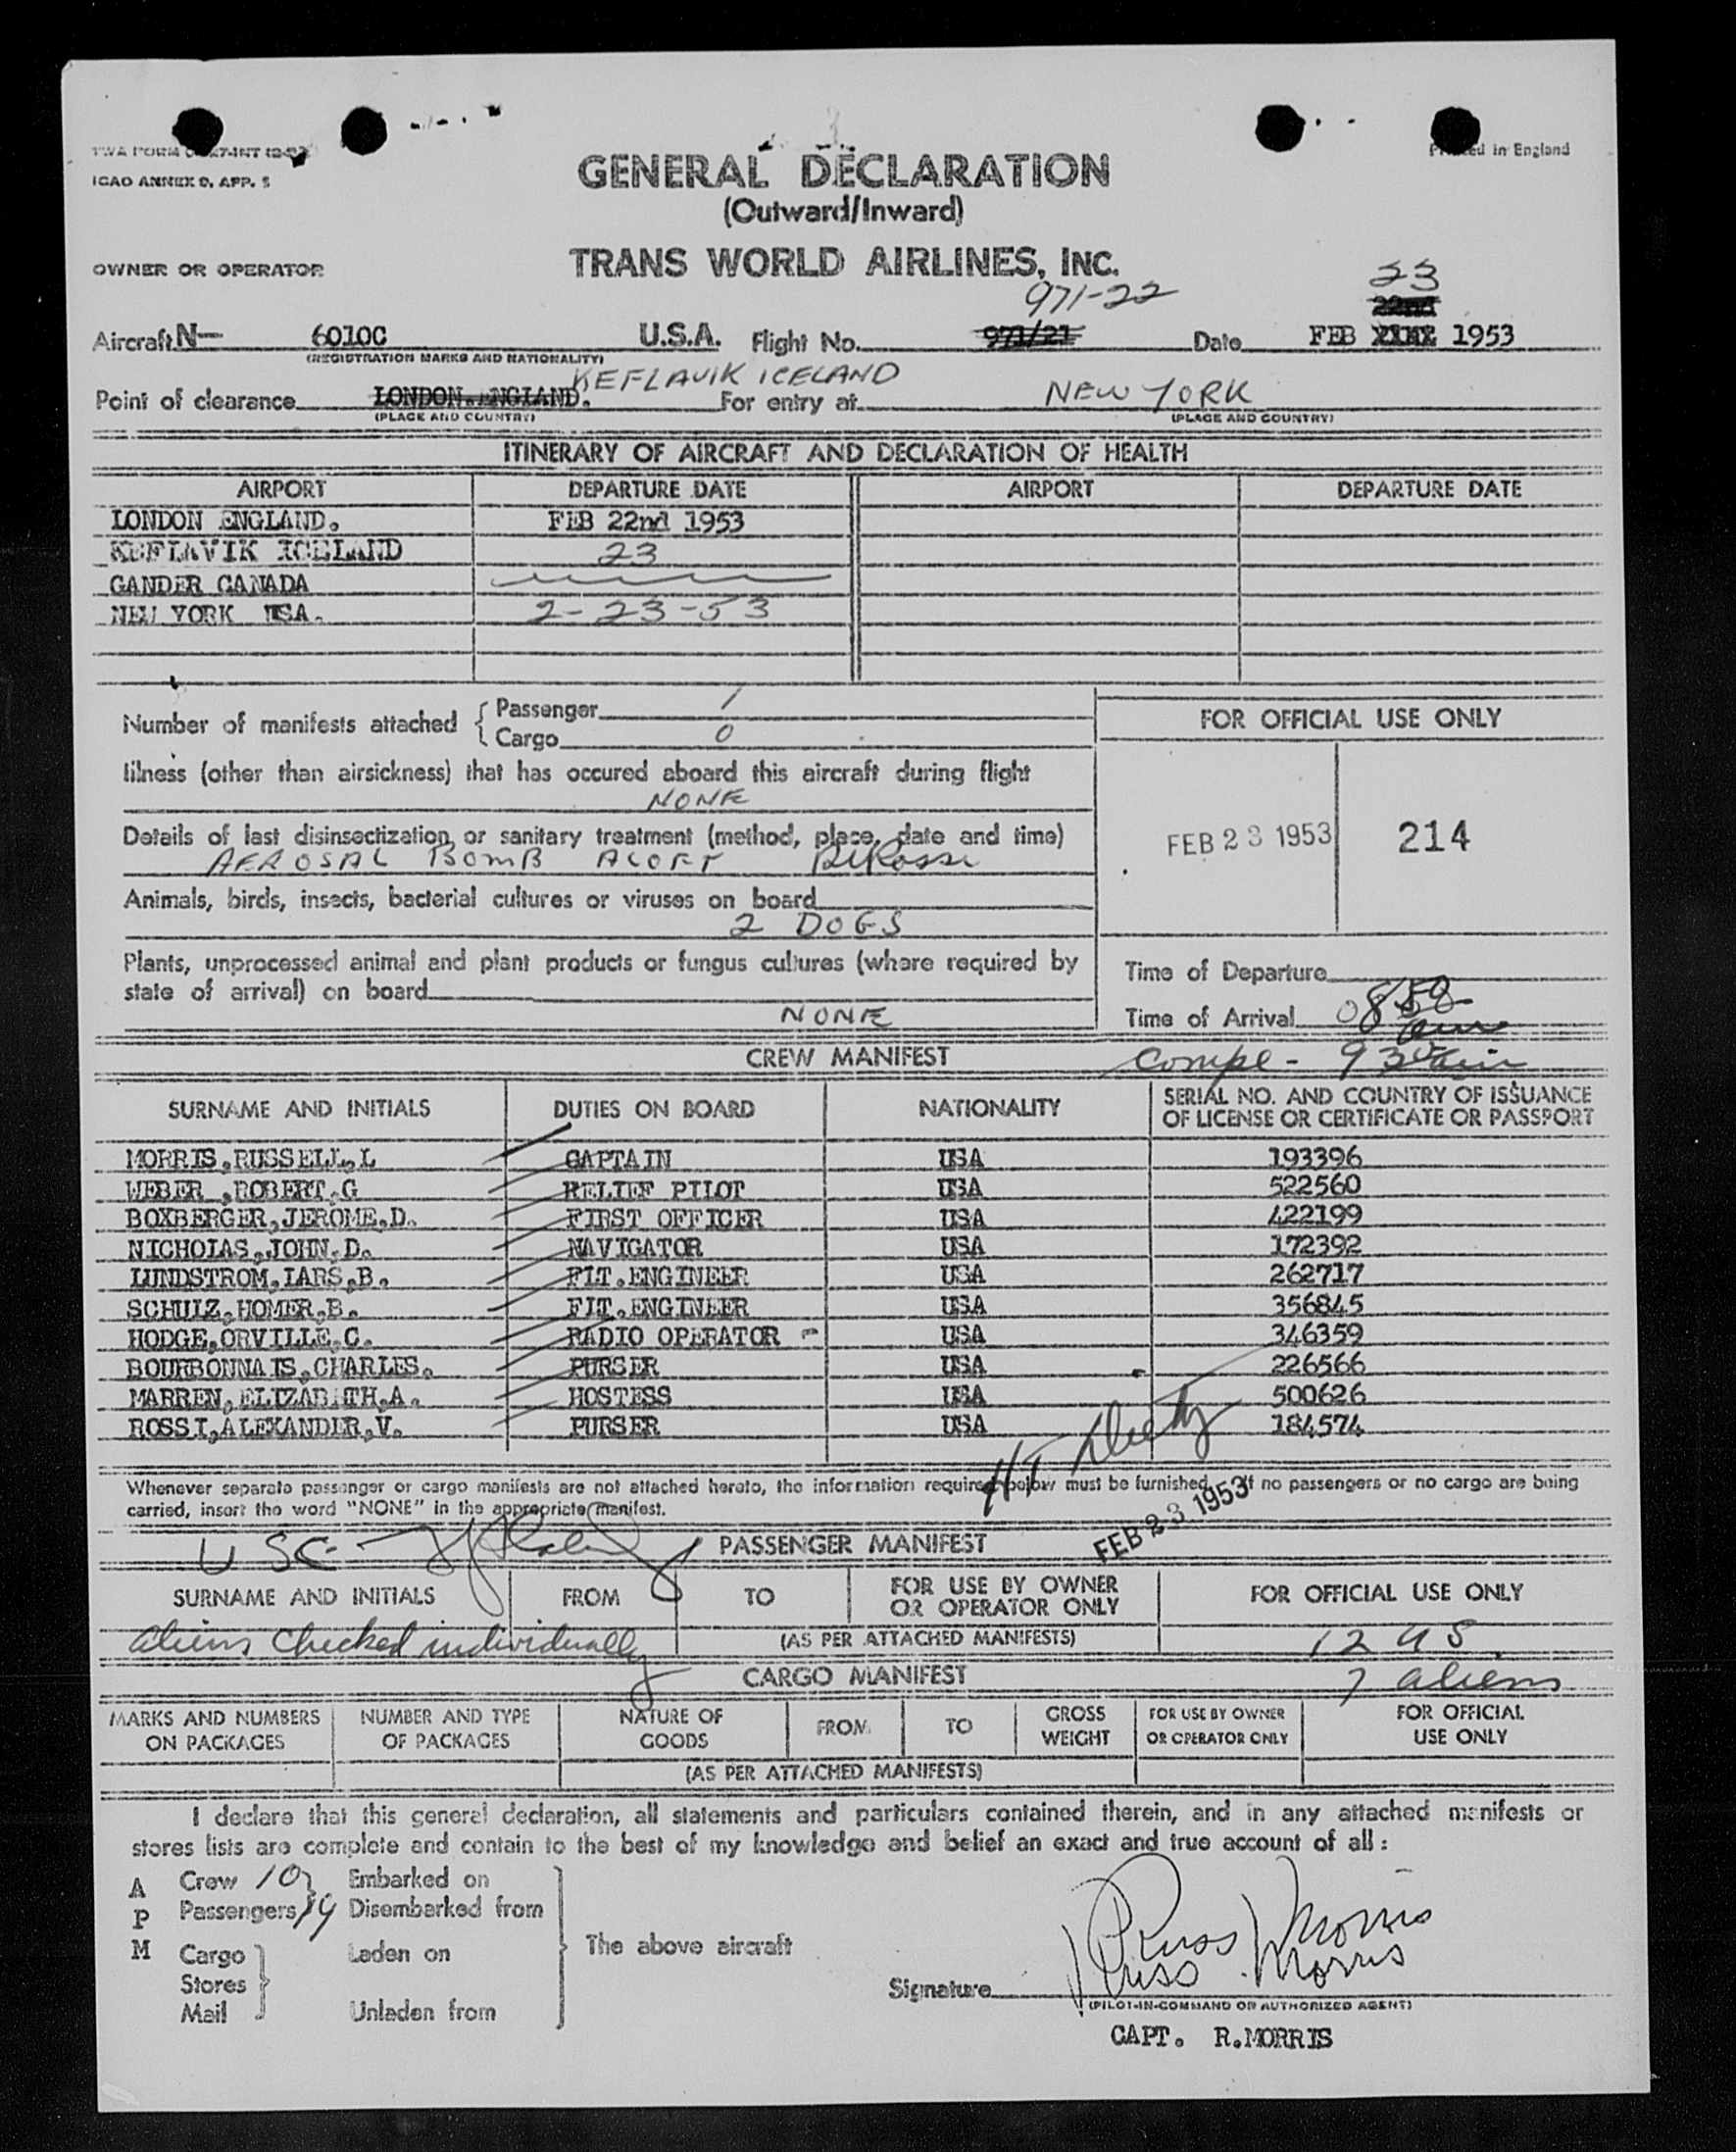 TWA FORM
ICAO ANNEX 9, APP. 5
Printed in England
GENERAL DECLARATION
(Outward/Inward)
OWNER OR OPERATOR TRANS WORLD AIRLINES, INC.
971-22 23
22nd
Aircraft N- 6010C U.S.A. Flight No. 971/21 Date FEB 1953
(REGISTRATION MARKS AND NATIONALITY)
Point of clearance LONDON.ENGLAND. KEFLAVIK ICELAND For entry at NEW YORK
(PLACE AND COUNTRY) (PLACE AND COUNTRY)
ITINERARY OF AIRCRAFT AND DECLARATION OF HEALTH
AIRPORT DEPARTURE DATE AIRPORT DEPARTURE DATE
LONDON ENGLAND. FEB 22nd 1953
KEFLAVIK ICELAND 23
GANDER CANADA
NEW YORK USA. 2-23-53
Number of manifests attached { Passenger 1
Cargo 0
FOR OFFICIAL USE ONLY
Illness (other than airsickness) that has occured aboard this aircraft during flight
NONE
FEB 23 1953 214
Details of last disinsectization or sanitary treatment (method, place, date and time)
AEROSAL BOMB ALOFT
Animals, birds, insects, bacterial cultures or viruses on board
2 DOGS
Plants, unprocessed animal and plant products or fungus cultures (where required by
state of arrival) on board
NONE
Time of Departure
Time of Arrival 0858
CREW MANIFEST
SURNAME AND INITIALS DUTIES ON BOARD NATIONALITY SERIAL NO. AND COUNTRY OF ISSUANCE
OF LICENSE OR CERTIFICATE OR PASSPORT
MORRIS,RUSSELL,L CAPTAIN USA 193396
WEBER ,ROBERT,G RELIEF PILOT USA 522560
BOXBERGER,JEROME,D. FIRST OFFICER USA 422199
NICHOLAS,JOHN,D. NAVIGATOR USA 172392
LUNDSTROM,LARS,B. FLT.ENGINEER USA 262717
SCHULZ,HOMER,B. FLT.ENGINEER USA 356845
HODGE,ORVILLE,C. RADIO OPERATOR - USA 346359
BOURBONNAIS,CHARLES. PURSER USA 226566
MARREN,ELIZABETH,A. HOSTESS USA 500626
ROSSI,ALEXANDER,V. PURSER USA 184574
Whenever separate passenger or cargo manifests are not attached hereto, the information required below must be furnished. If no passengers or no cargo are being
carried, insert the word "NONE" in the appropriate manifest.
FEB 23 1953
USC - PASSENGER MANIFEST
SURNAME AND INITIALS FROM TO FOR USE BY OWNER
OR OPERATOR ONLY FOR OFFICIAL USE ONLY
aliens checked individually (AS PER ATTACHED MANIFESTS) 12 US
CARGO MANIFEST 7 aliens
MARKS AND NUMBERS
ON PACKAGES NUMBER AND TYPE
OF PACKAGES NATURE OF
GOODS FROM TO GROSS
WEIGHT FOR USE BY OWNER
OR OPERATOR ONLY FOR OFFICIAL
USE ONLY
(AS PER ATTACHED MANIFESTS)
I declare that this general declaration, all statements and particulars contained therein, and in any attached manifests or
stores lists are complete and contain to the best of my knowledge and belief an exact and true account of all :
A Crew 10 Embarked on
P Passengers 19 Disembarked from
M Cargo Laden on
Stores
Mail Unladen from
The above aircraft
Russ Morris
Russ Morris
Signature
(PILOT-IN-COMMAND OR AUTHORIZED AGENT)
CAPT. R.MORRIS